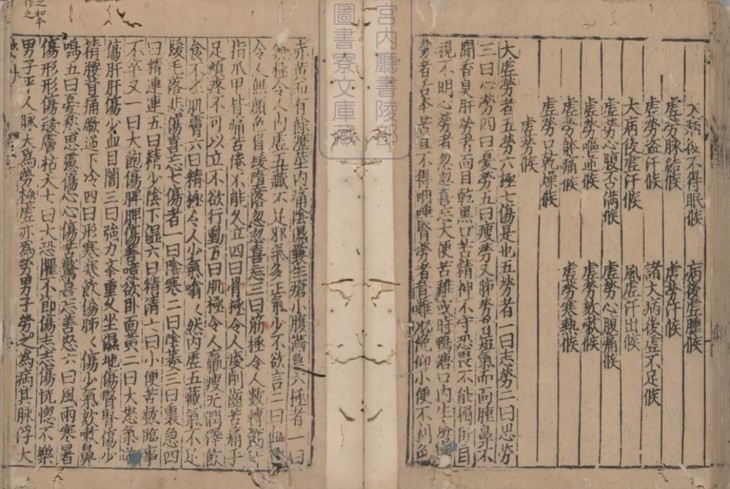 大病後不得眠候　病後虛腫候
虛勞脉結候　虛勞汗候
虛勞盗汗候　諸大病後虛不足候
大病後虛汗候　風虛汗出候
虛勞心腹否滿候　虛勞心腹痛候
虛勞嘔逆候　虛勞欬嗽候
虛勞躰痛候　虛勞寒熱候
虛勞口乾燥候
夫虛勞者五勞六極七傷是也五勞者一曰志勞二曰思勞
三曰心勞四曰憂勞五曰瘦勞又肺勞者短氣而面腫鼻不
聞香臭肝勞者面目乾黑口苦精神不守恐畏不能獨卧目
視不明心勞者忽忽喜忘大便苦難或時鴨溏口内生瘡脾
勞者舌本苦直不得咽唾腎勞者背難以俛仰小便不利色
赤黄而有餘瀝莖内痛陰濕囊生瘡小腹滿急六極者一曰
氣極令人内虛五藏不足邪氣多正氣少不欲言二曰血極
令人無顏色眉髮墮落忽忽喜忘三曰筋極令人數轉筋十
指爪甲皆痛苦倦不能久立四曰骨極令人痠削齒苦痛手
足煩疼不可以立不欲行動五曰肌極令人羸瘦无潤澤飲
食不生肌膚六曰精極令人少氣噏噏然内虛五藏氣不足
髮毛落悲傷喜忘七傷者一曰陰寒二曰陰萎三曰裏急四
曰精連連五曰精少陰下濕六曰精清七曰小便苦數臨事
不卒又一曰大飽傷脾脾傷善噫欲卧面黄二曰大怒氣逆
傷肝肝傷少血目闇三曰強力舉重久坐濕地傷腎腎傷少
精腰背痛厥逆下冷四曰形寒寒飲傷肺肺傷少氣欬嗽鼻
鳴五曰憂愁思慮傷心心傷苦驚喜忘善怒六曰風雨寒暑
傷形形傷髮膚枯夭七曰大恐懼不節傷志志傷恍惚不樂
男子平人脉大為勞極虛亦為勞男子勞之為病其脉浮大
宮内廳書陵部
圖書寮文庫藏